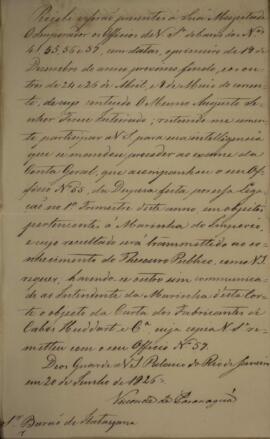 Recebi e forão presentes a Sua Magestade
O Imperador os Officios de V. S.ª debaixo dos N.os
41, 55, 56 e 57, com datas, o primeiro de 19 de
Dezembro do anno proximo findo, e os ou-
tros de 24 e 26 de Abril, e 1 de Maio do corren-
te, de cujo conteudo O Mesmo Augusto Se-
nhor Ficou Inteirado; restando-me somen-
te participar a V. S. para sua intelligencia
que se mandou proceder ao exame da
Conta Geral, que acompanhou o seu Of-
ficio N.º 55, da Despeza feita por essa Lega-
ção no 1.º Trimestre deste anno, em objectos
pertencentes á Marinha do Imperio,
e cujo resultado será transmettido ao co-
nhecimento do Thesouro Publico, como V. S.
requer, havendo-se outro sim communica-
do ao Intendente da Marinha desta Corte
o objecto da Carta dos Fabricantes de
Cabos Huddart e C.ª cuja copia V. S.ª re-
metteu com o seu Officio N.º 57.
Deos Guarde a V. S. Palacio do Rio de Janeiro
em 20 de Junho de 1826
Visconde de Paranaguá
Snr. Barão de Itabayana